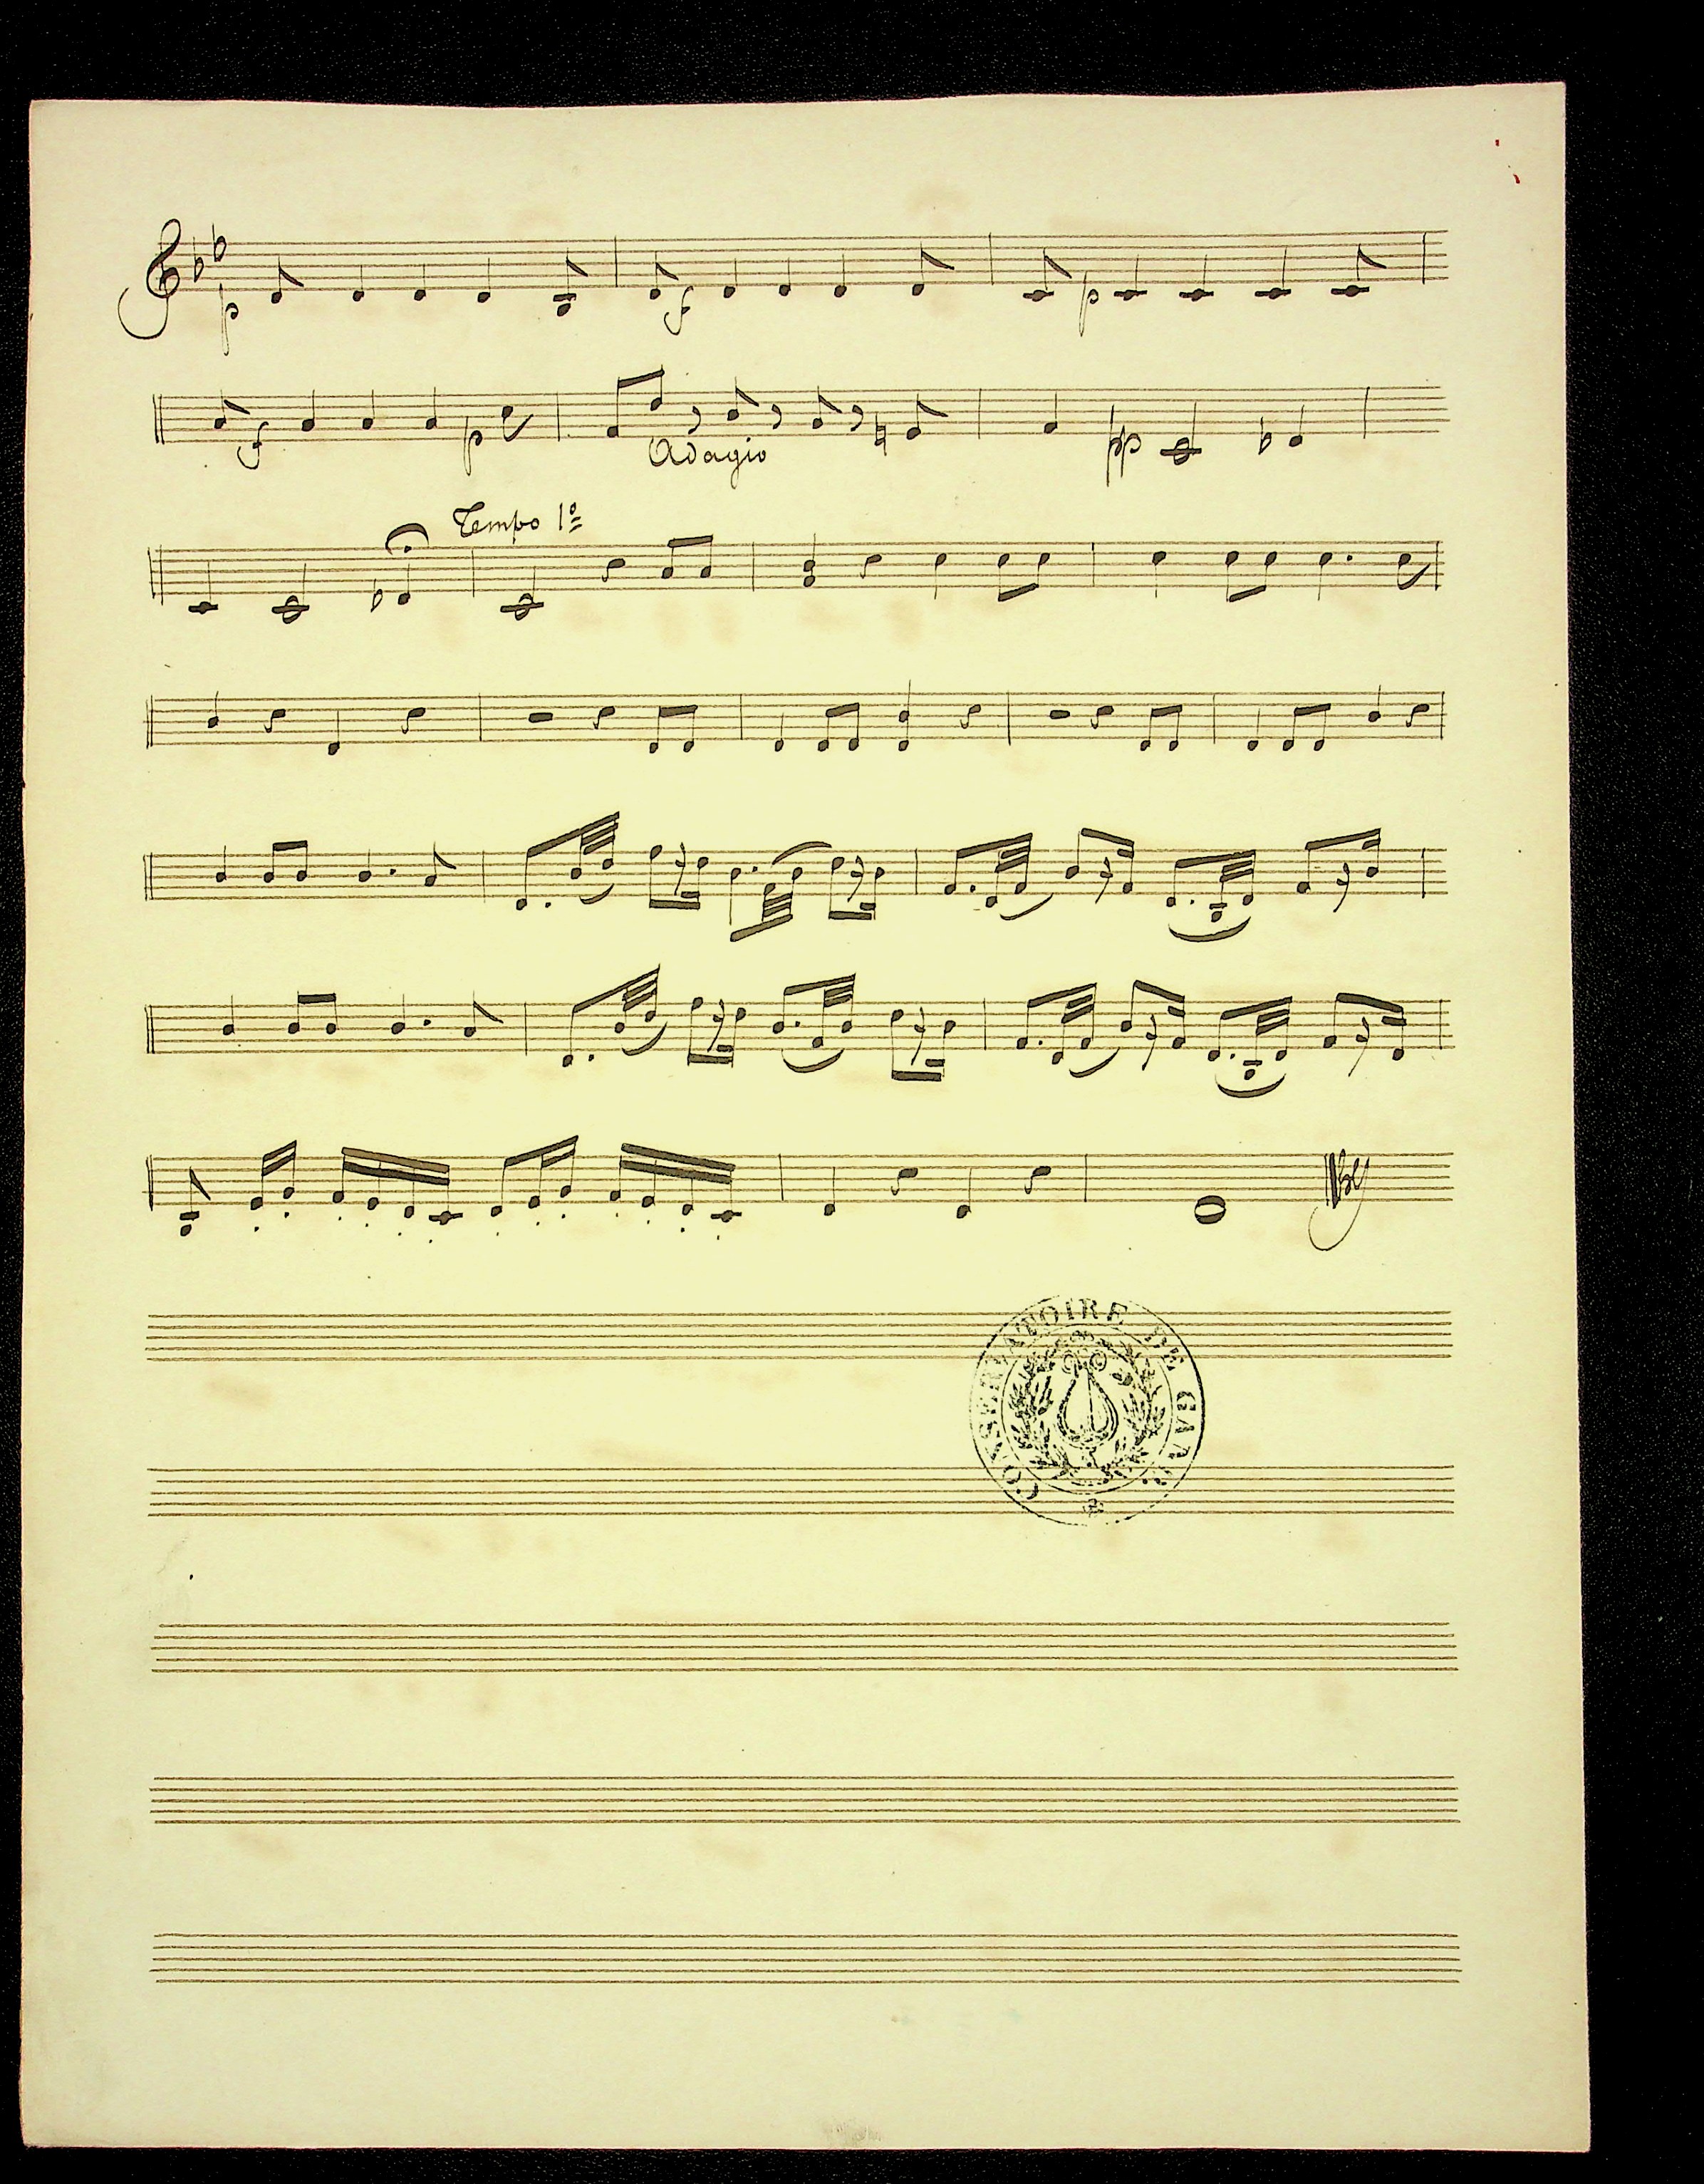 p f p
f p
Adagio
pp
Tempo 1º
CONSERVATOIRE DE GAND